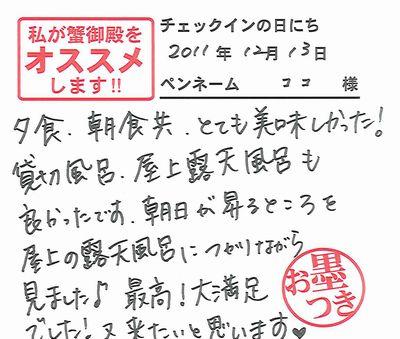 私が蟹御殿を
オススメ
します!!
チェックインの日にち
2011年 12月 13日
ペンネーム ココ 様
夕食、朝食共、とても美味しかった!
貸切風呂、屋上露天風呂も
良かったです、朝日が昇るところを
屋上の露天風呂につかりながら
見ました♪ 最高!大満足
でした!又来たいと思います♥
お墨
つき